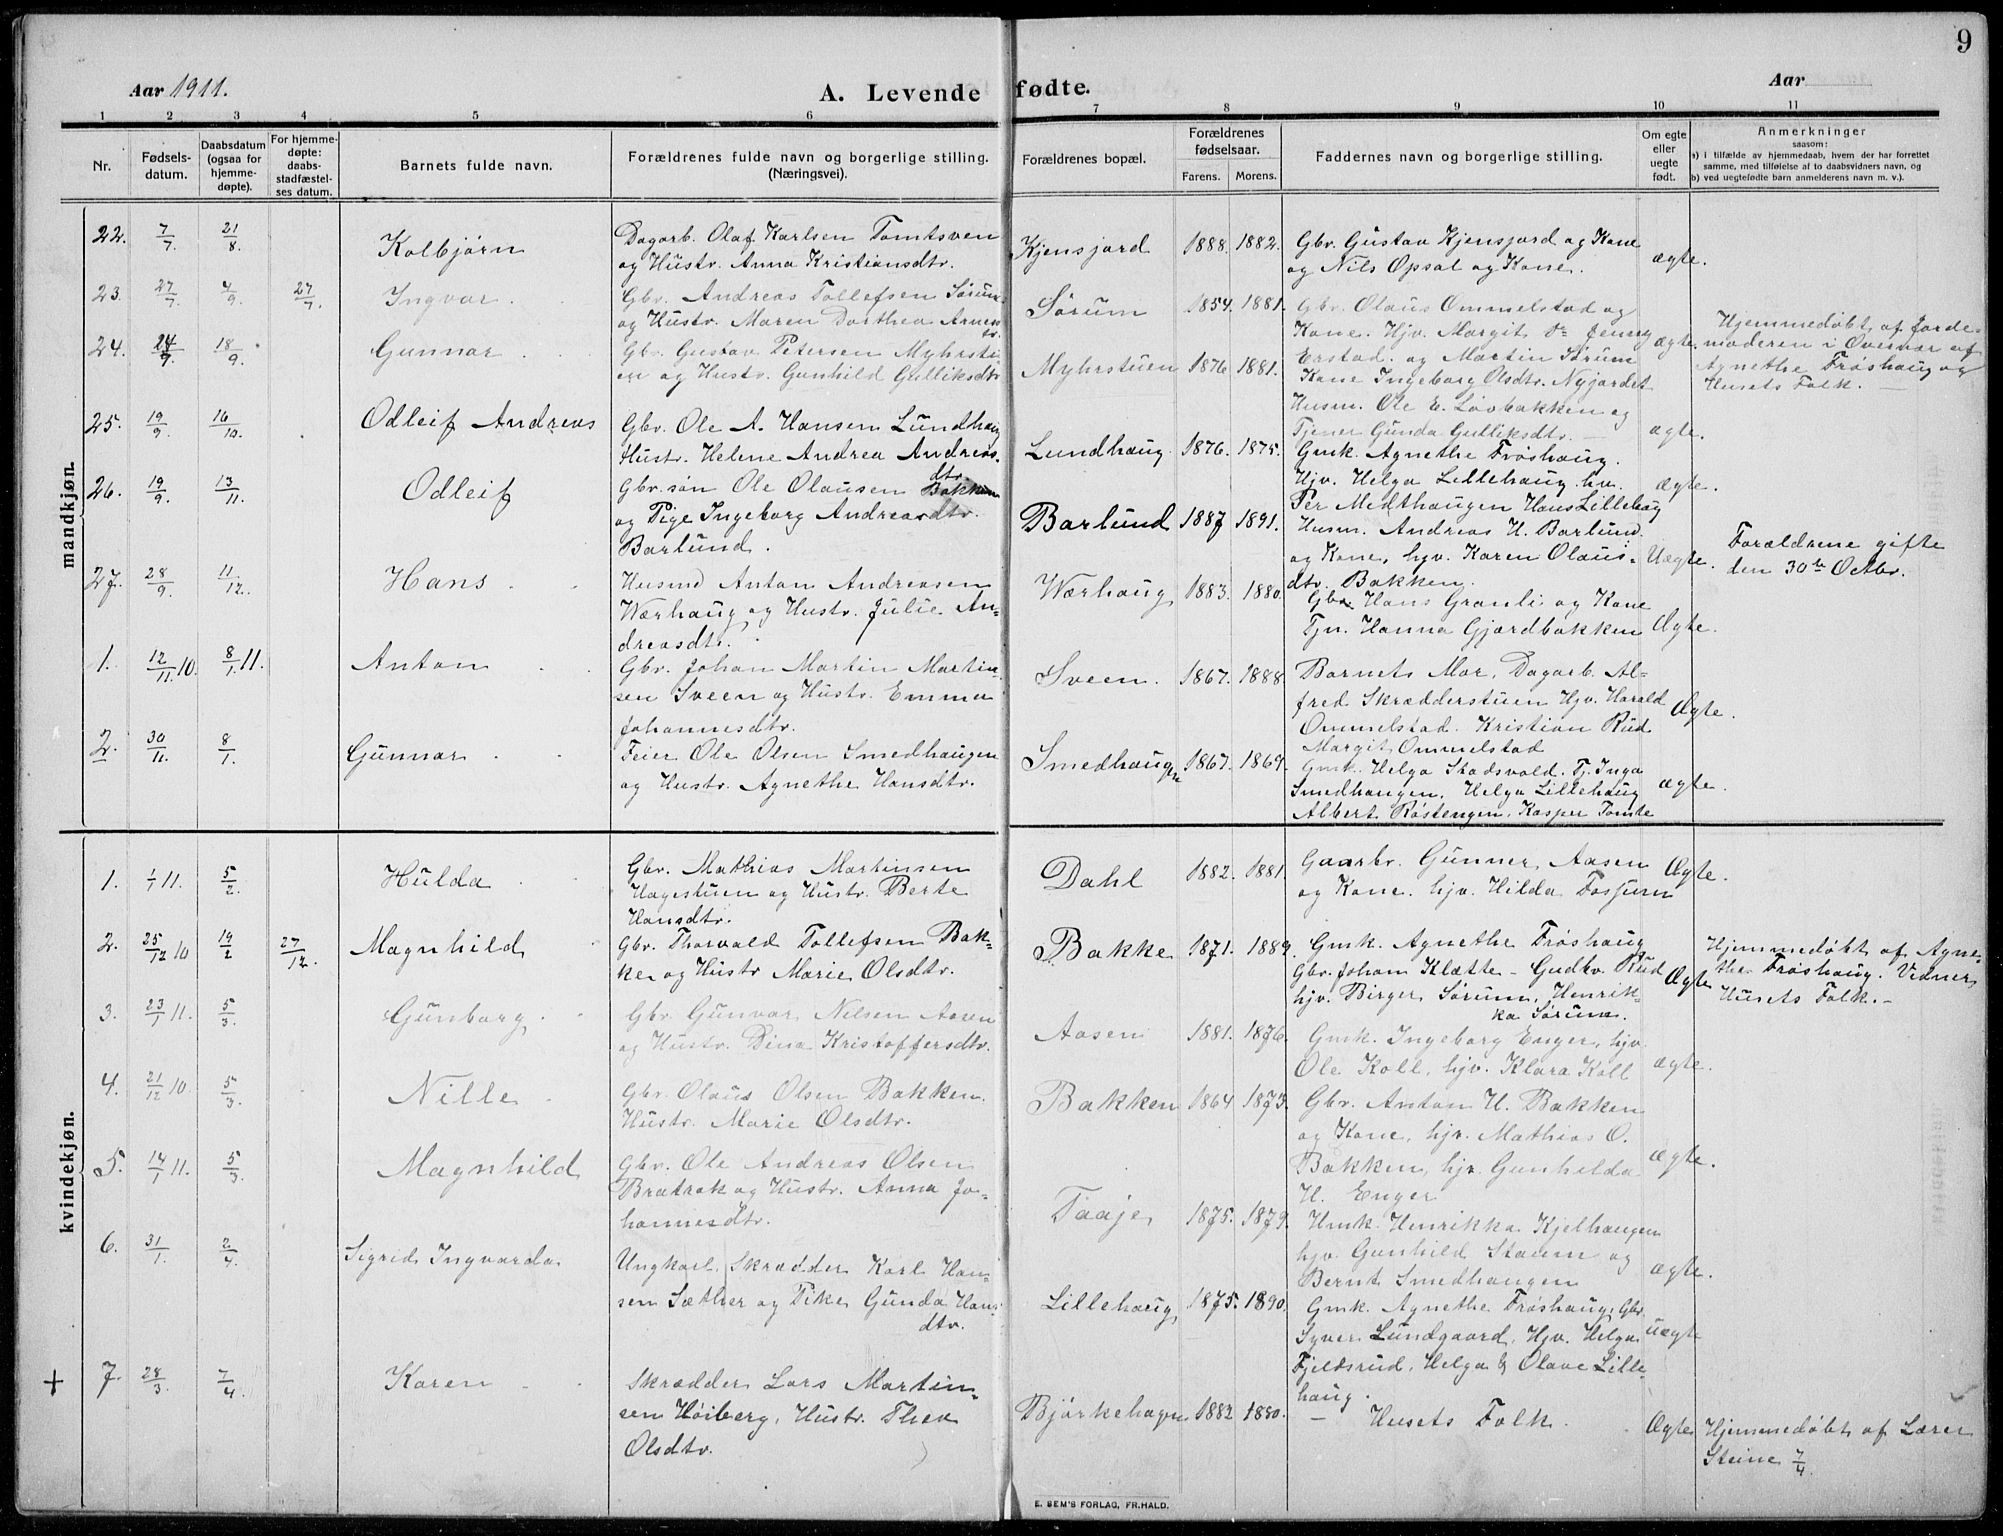 9
Aar 1911.
A. Levende fødte.
Aar
1 2 3 4 5 6 7 8 9 10 11
Nr.
Fødsels-
datum.
Daabsdatum
(ogsaa for
hjemme-
døpte).
For hjemme-
døpte:
daabs-
stadfæstel-
ses datum.
Barnets fulde navn.
Forældrenes fulde navn og borgerlige stilling.
(Næringsvei).
Forældrenes bopæl.
Forældrenes
fødselsaar.
Farens. Morens.
Faddernes navn og borgerlige stilling.
Om egte
eller
uegte
født.
Anmerkninger
saasom:
a) i tilfælde av hjemmedaab, hvem der har forrettet
samme, med tilføielse af to daabsvidners navn, og
b) ved uegtefødte barn anmelderens navn m. v.).
mandkjøn.
22. 7/7 21/8 Kolbjørn
Dagarb. Olaf Karlsen Tomtsven
og Hustr. Anna Kristiansdtr.
Kjensjord 1888. 1882.
Gbr. Gustav Kjensjord og Kone
og Nils Opsal og Kone.
ægte.
23. 27/7 4/9 27/7 Ingvar
Gbr. Andreas Tollefsen Sørum
og Hustr. Maren Dorthea Arnes
dtr.
Sørum 1854. 1881.
Gbr. Olaus Ommelstad og
Kone. Hjv. Margit Do Jenny
Erstad. og Martin Sørum
ægte.
Hjemmedøbt af Jorde-
moderen i
Agnethe Frøshaug og
Husets Folk.
24. 24/7 18/9 Gunnar
Gbr. Gustav Petersen Myhrstu-
en og Hustr. Gunhild Gulliksdtr
Myhrstuen 1876 1881.
Kone Ingeborg Olsdtr. Nyjordet
Husm. Ole E. Løvbakken og
Tjener Gunda Gulliksdtr.
ægte.
25. 19/9 16/10 Odleif Andreas
Gbr. Ole A. Hansen Lundhaug
Hustr. Helene Andrea Andreas
dtr.
Lundhaug 1876. 1875.
Gmk. Agnethe Frøshaug.
Hjv. Helga Lillehaug. hv.
Per Medthaugen Hans Lillehag
ægte.
26. 19/9 13/11 Odleif
Gbr. søn Ole Olausen Bakken
og Pige Ingeborg Andreasdtr.
Barlund.
Barlund 1887 1891.
Husm. Andreas H. Barlund
og Kone, hjv. Karen Olaus-
dtr. Bakken.
Uægte.
Forældrene gifte
den 30te Octbr.
27. 28/9 11/12 Hans
Husmd Anton Andreasen
Wærhaug og Hustr. Julie An-
dreasdtr.
Wærhaug 1883. 1880.
Gbr. Hans Granli og Kone
Tjn. Hanna Gjærdbakken
Ægte.
1. 12/11 10. 8/1 11. Anton
Gbr. Johan Martin Martin-
sen Sveen og Hustr. Emma
Johannesdtr.
Sveen. 1867. 1888.
Barnets Mor, Dagarb. Al-
fred Skrædderstuen Hjv. Harald
Ommelstad. Kristian Rud
Margit Ommelstad
Ægte.
2. 30/11 8/1 Gunnar
Feier Ole Olsen Smedhaugen
og Hustr. Agnethe Hansdtr.
Smedhaugen 1867. 1869.
Gmk. Helga Stadsvold. Tj. Inga
Smedhaugen, Helga Lillehaug
Albert Røstengen, Kasper Tomte
ægte.
kvindekjøn.
1. 1/1 11. 5/2 Hulda
Gbr. Mathias Martinsen
Hagestuen og Hustr. Berte
Hansdtr.
Dahl 1882. 1881
Gaarbr. Gunner Aasen
og Kone. hjv. Hilda
Ægte.
2. 25/12 10 19/2 27/12. Magnhild
Gbr. Thorvald Tollefsen Bak-
ke og Hustr Marie Olsdtr.
Bakke 1871. 1889.
Gmk. Agnethe Frøshaug
Gbr. Johan Klætte - Gudbr. Rud
hjv. Birger Sørum, Henrik-
ka Sørum.
Ægte
Hjemmedøbt af Agne-
the Frøshaug. Vidner
Husets Folk. -
3. 23/1 11. 5/3 Gunborg
Gbr. Gunvar Nilsen Aasen
og Hustr. Dina Kristoffersdtr.
Aasen 1881. 1876.
Gmk. Ingeborg Enger, hjv.
Ole Koll, hjv. Klara Koll
ægte.
4. 21/12 10 5/3 Nille
Gbr. Olaus Olsen Bakken.
Hustr. Marie Olsdtr.
Bakken 1864 1873.
Gbr. Anton H. Bakken
og Kone, hjv. Mathias O.
Bakken, hjv. Gunhilda
H. Enger
ægte.
5. 14/1 11. 5/3 Magnhild
Gbr. Ole Andreas Olsen
Bratrok og Hustr. Anna Jo-
hannesdtr.
Taaje 1875. 1879.
Hmk. Henrikka Kjelhaugen
hjv. Gunhild Staum og
Bernt Smedhaugen
ægte.
6. 31/1 2/4 Sigrid Ingvarda
Ungkarl, Skrædder Karl Han-
sen Sæther og Pike Gunda Hans
dtr.
Lillehaug 1875. 1890.
Gmk. Agnethe Frøshaug, Gbr.
Syver Lundgaard, Hjv. Helga
Fjeldsrud, Helga & Olave Lille-
haug.
uægte
+ 7. 28/3 7/4 Karen
Skrædder Lars Martin-
sen Høiberg, Hustr. Thea
Olsdtr.
Bjørkehagen 1882 1880.
— Husets Folk.
Ægte
Hjemmedøbt af Lærer
Steine 7/4
E. SEM'S FORLAG, FR.HALD.